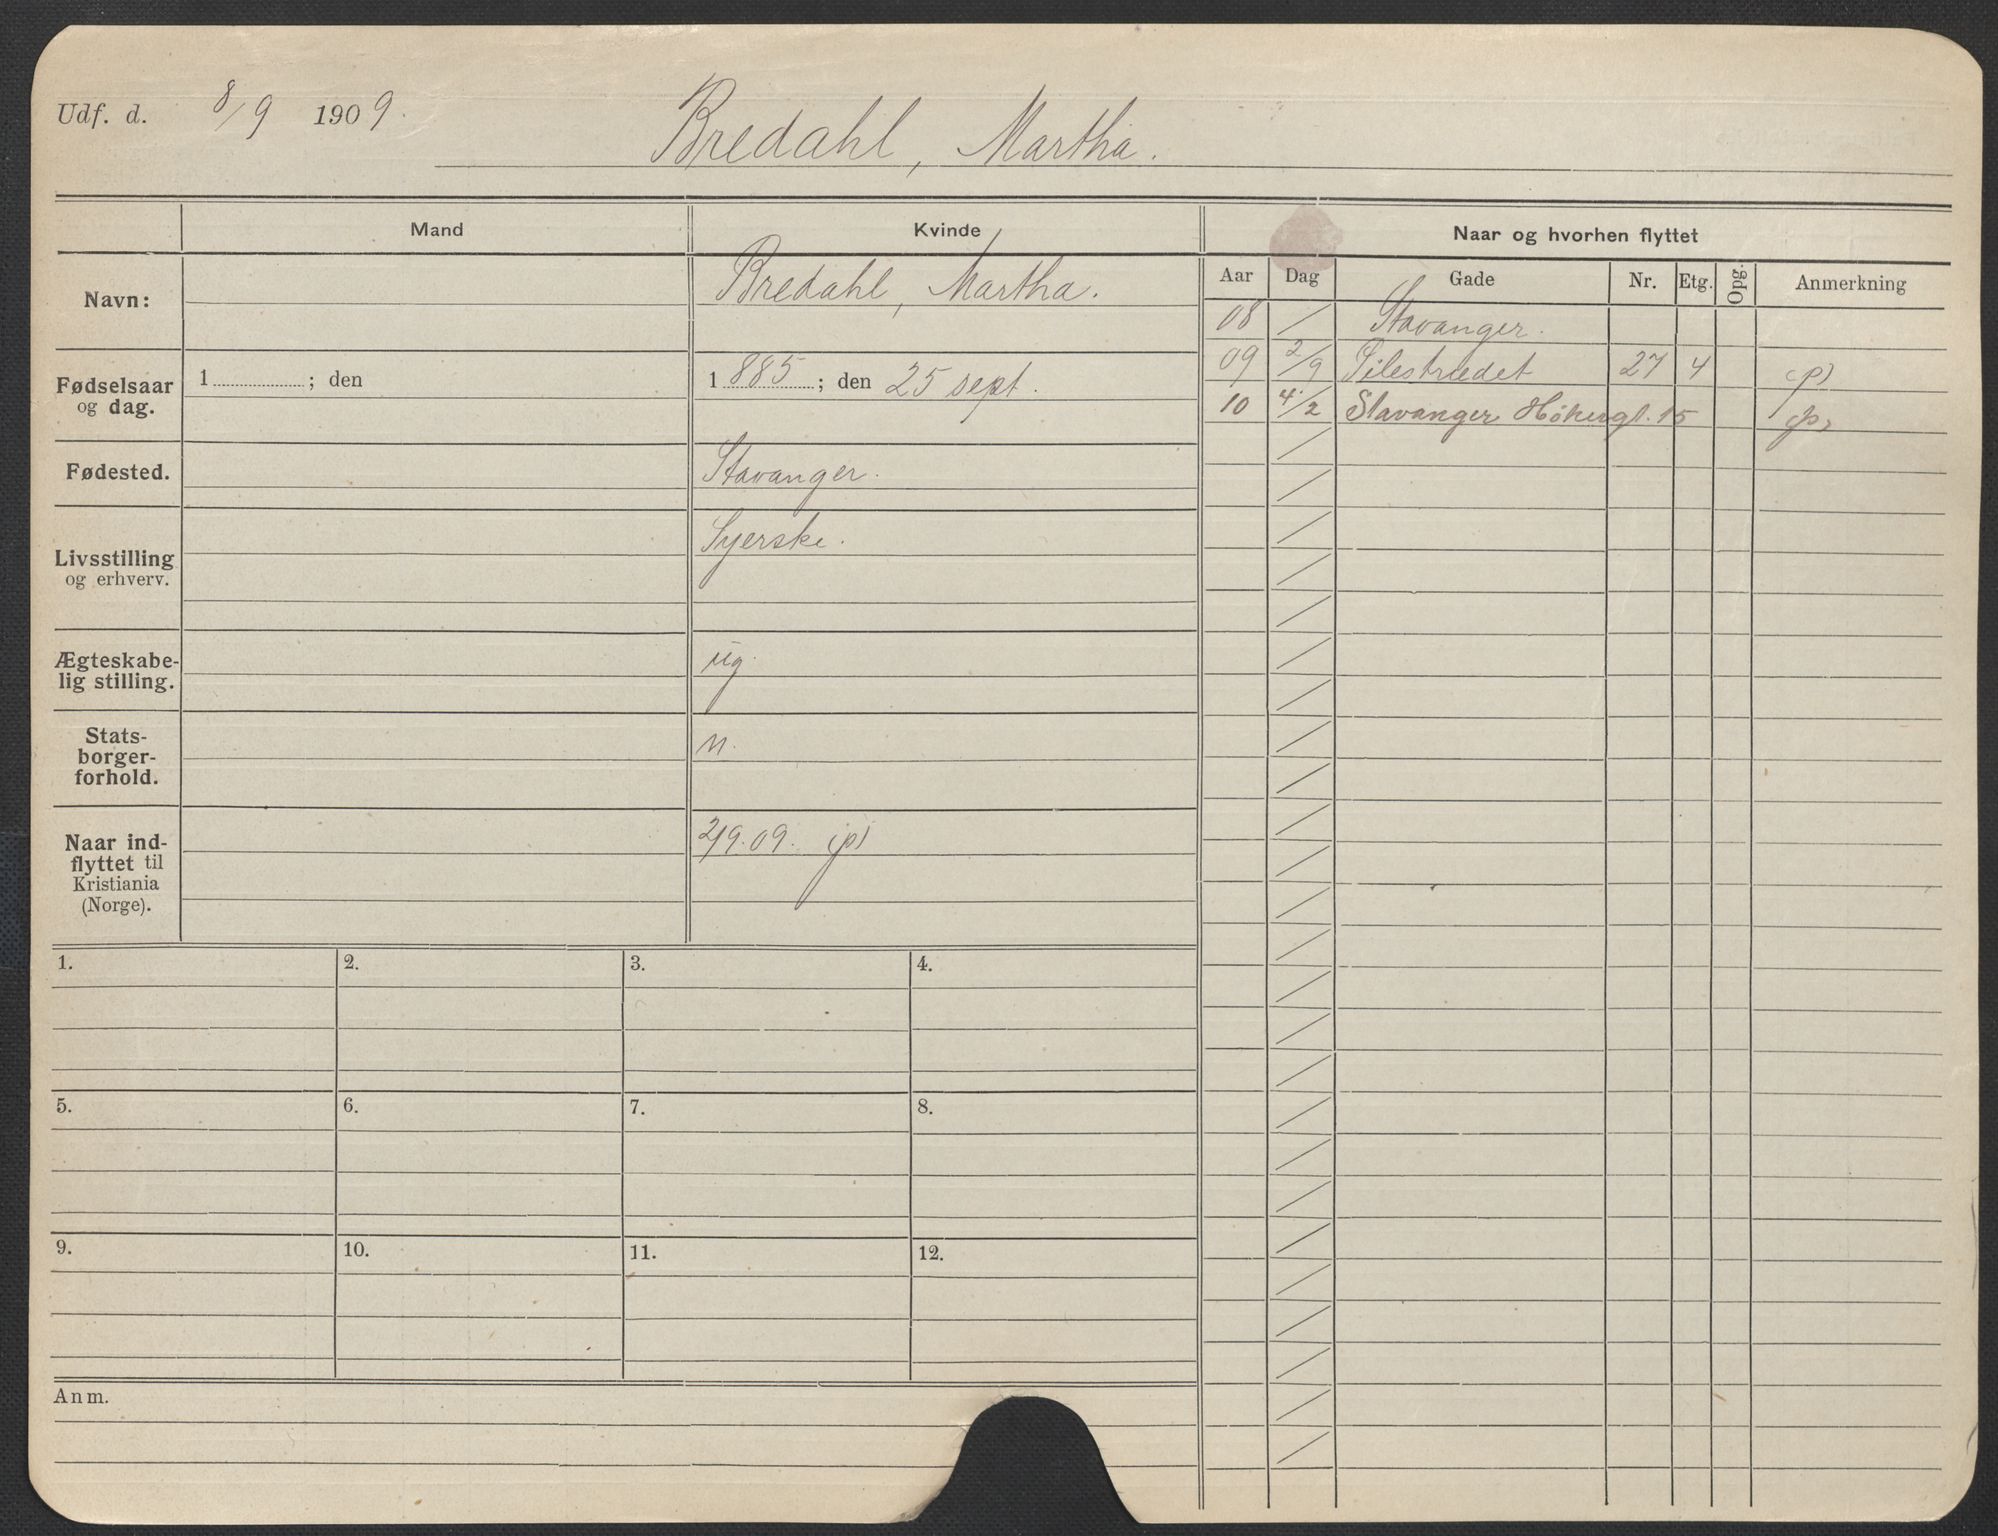 Udf. d. 8/9 1909.
Bredahl, Martha.
Mand
Kvinde
Naar og hvorhen flyttet
Navn:
Bredahl, Martha.
Fødselsaar
og dag.
1 ; den
1885; den 25 sept.
Fødested.
Stavanger.
Livsstilling
og erhverv.
Syerske.
Ægteskabe-
lig stilling.
ug.
Stats-
borger-
forhold.
n.
Naar ind-
flyttet til
Kristiania
(Norge).
2/9.09. (p)
1. 2. 3. 4.
5. 6. 7. 8.
9. 10. 11. 12.
Anm.
Aar Dag Gade Nr. Etg. Opg. Anmerkning
08 / Stavanger.
09 2/9 Pilestrædet 27 4 (p)
10 4/2 Stavanger Høkergt. 15 (p)